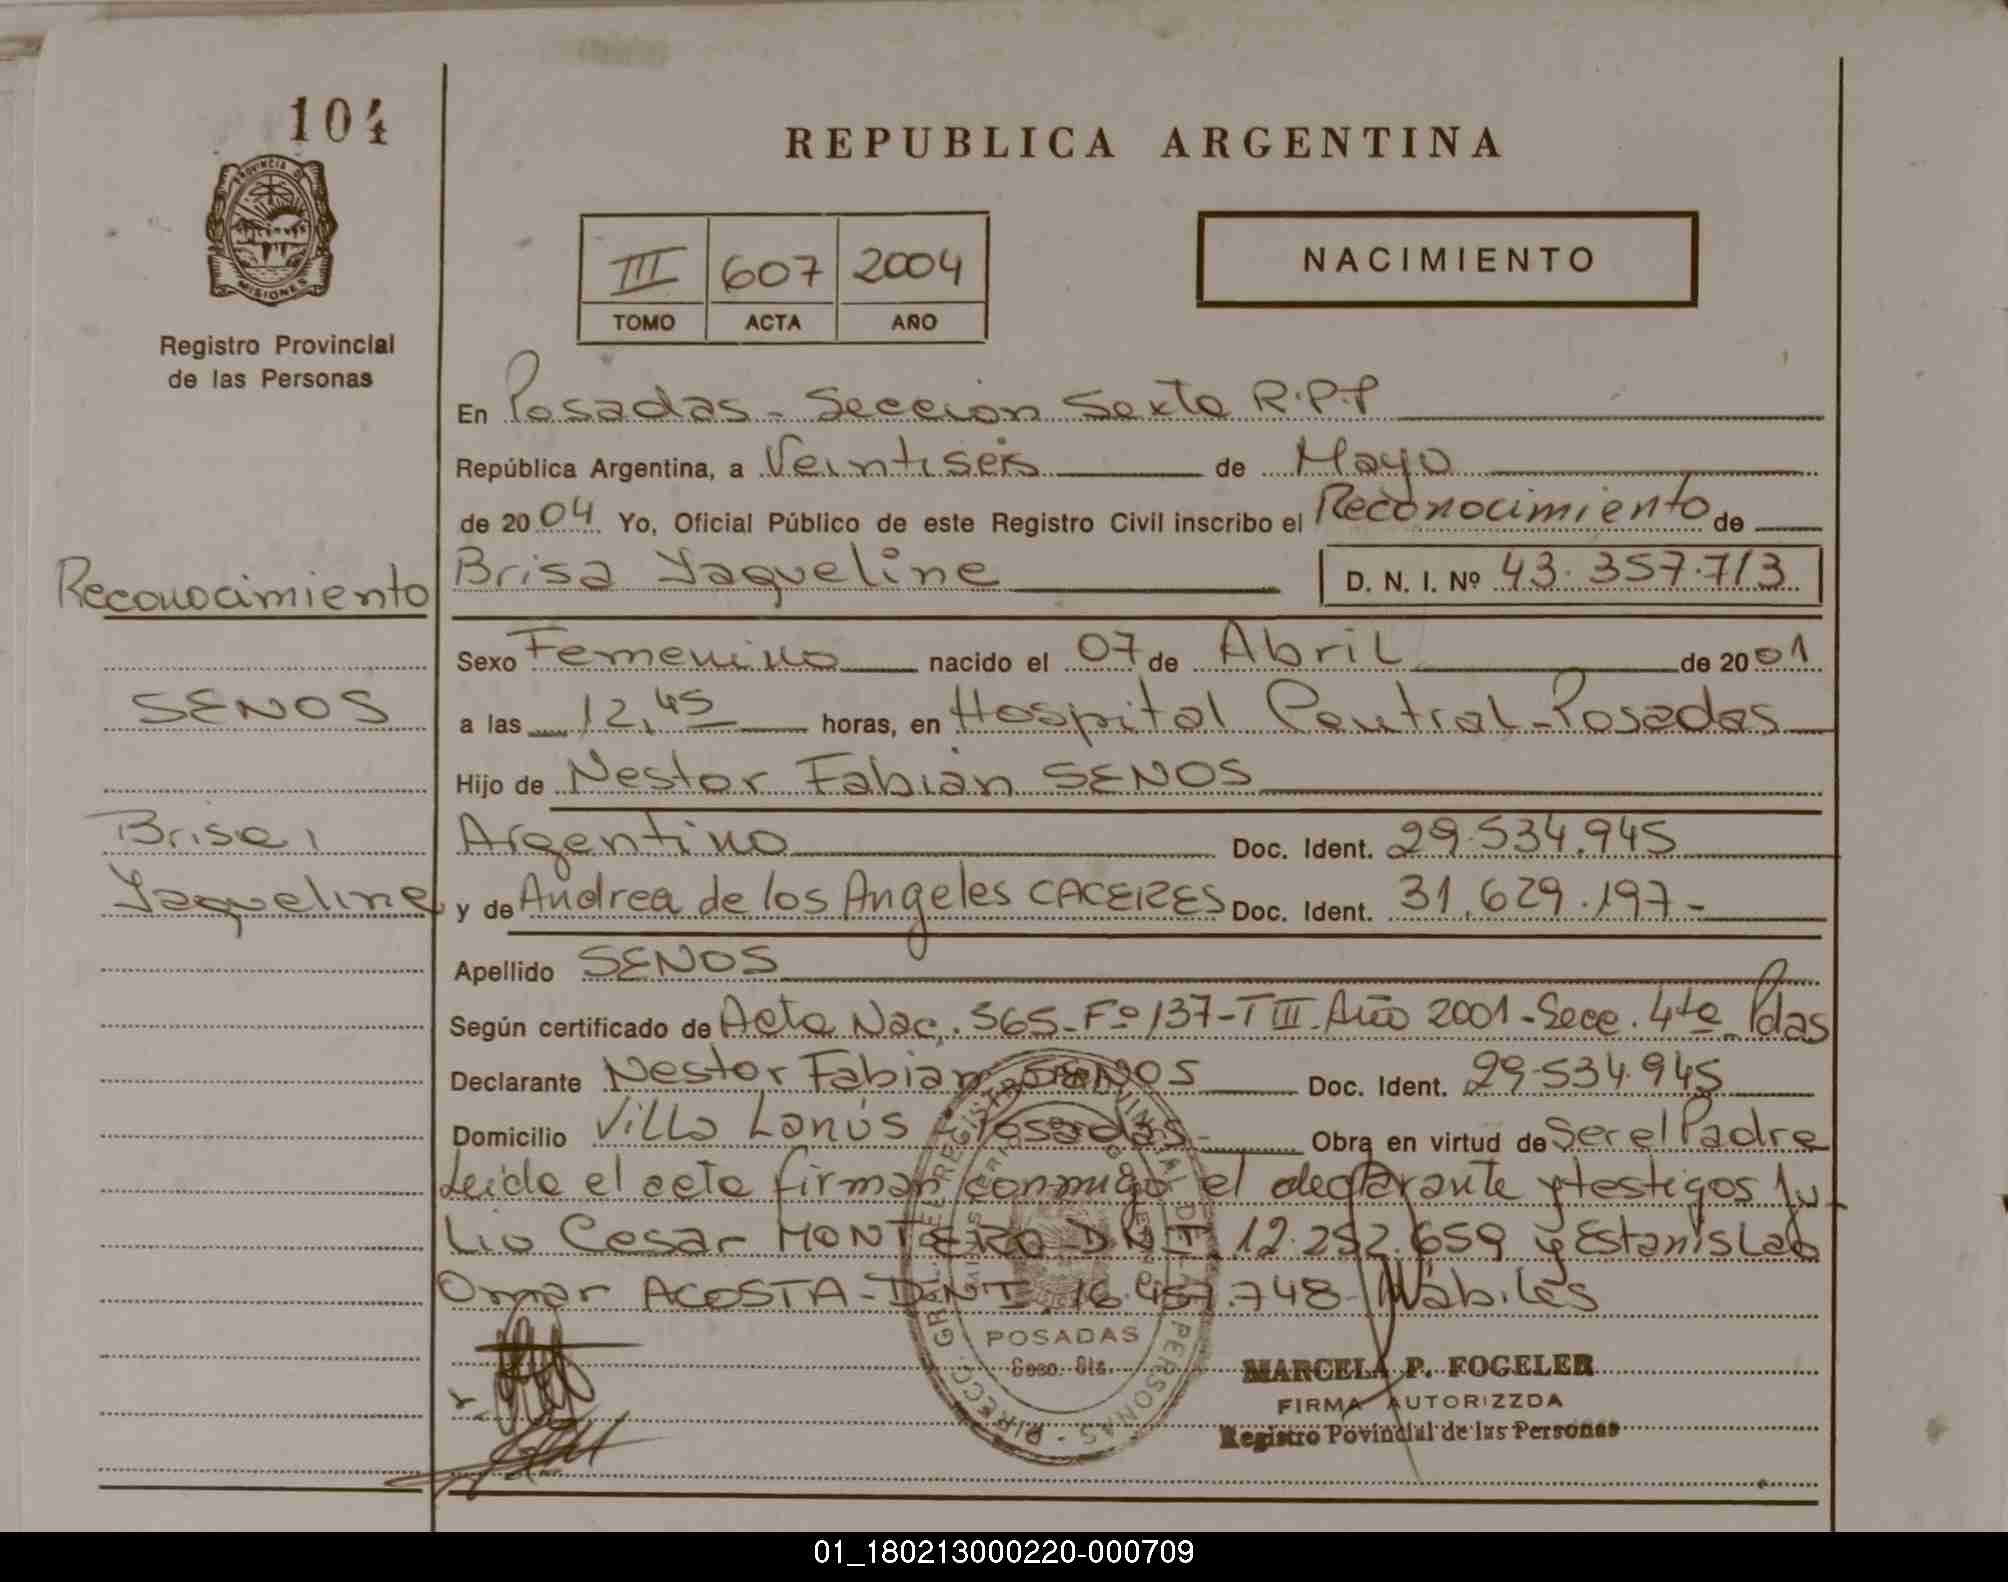 104
PROVINCIA DE
MISIONES
Registro Provincial
de las Personas
REPUBLICA ARGENTINA
III 607 2004
TOMO ACTA AÑO
NACIMIENTO
En Posadas - Seccion Sexta R.P.P
República Argentina, a Veintiseis de Mayo
de 2004 Yo, Oficial Público de este Registro Civil inscribo el Reconocimiento de
Brisa Yaqueline D. N. I. Nº 43.357.713
Reconocimiento
SENOS
Brisa,
Yaqueline
Sexo Femenino nacido el 07 de Abril de 2001
a las 12,45 horas, en Hospital Central - Posadas
Hijo de Nestor Fabian SENOS
Argentino Doc. Ident. 29.534.945
y de Andrea de los Angeles CACERES Doc. Ident. 31.629.197-
Apellido SENOS
Según certificado de Acta Nac. 565-Fº137-TIII-Año 2001-Secc. 4ta Pdas
Declarante Nestor Fabian SENOS Doc. Ident. 29.534.945
Domicilio Villa Lanús Posadas- Obra en virtud de Ser el Padre
Leída el acta firman conmigo el declarante y testigos Ju-
lio Cesar MONTERO D.N.I. 12.252.659 y Estanislao
Omar ACOSTA-D.N.I. 16.457.748- Hábiles
POSADAS
MARCELA P. FOGELER
FIRMA AUTORIZZDA
Registro Povincial de las Personas
01_180213000220-000709